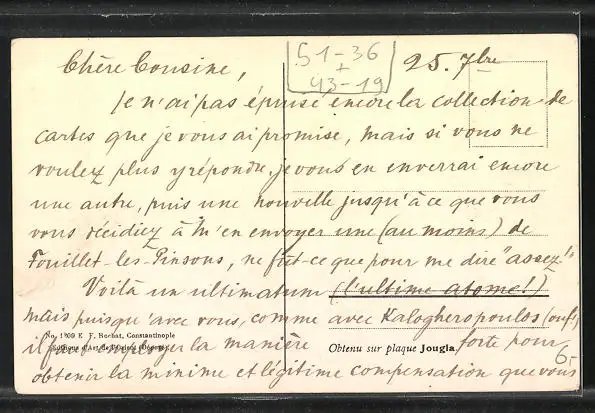 51-36
+
43-19
25. 7bre
Chère Cousine,
Je n'ai pas épuisé encore la collection de
cartes que je vous ai promise, mais si vous ne
voulez plus y répondre, je vous en enverrai encore
une autre, puis une nouvelle jusqu'à ce que vous
vous décidiez à m'en envoyer une (au moins) de
Fouillet-les-Pinsons, ne fût-ce que pour me dire "assez!"
Voilà un ultimatum (l'ultime atome!)
mais puisqu'avec vous, comme avec Kalogheropoulos (ouf!)
il faut employer la manière forte pour
obtenir la minime et légitime compensation que vous
E. F. Rochat, Constantinople
Obtenu sur plaque Jougla.
65